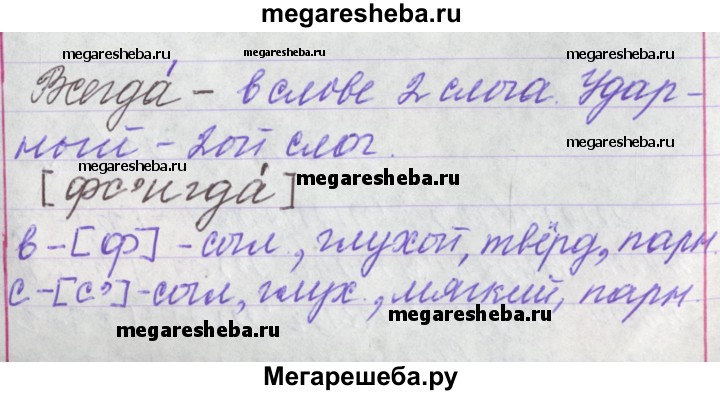 megaresheba.ru
megaresheba.ru megaresheba.ru megaresheba.ru
Всегда́ – в слове 2 слога. Удар-
ный – 2ой слог.
megaresheba.ru
megaresheba.ru
[фс’игда́]
megaresheba.ru
в – [ф] – согл., глухой, твёрд, парн.
с – [с’] – согл, глух, мягкий, парн.
megaresheba.ru
megaresheba.ru
Мегарешеба.ру